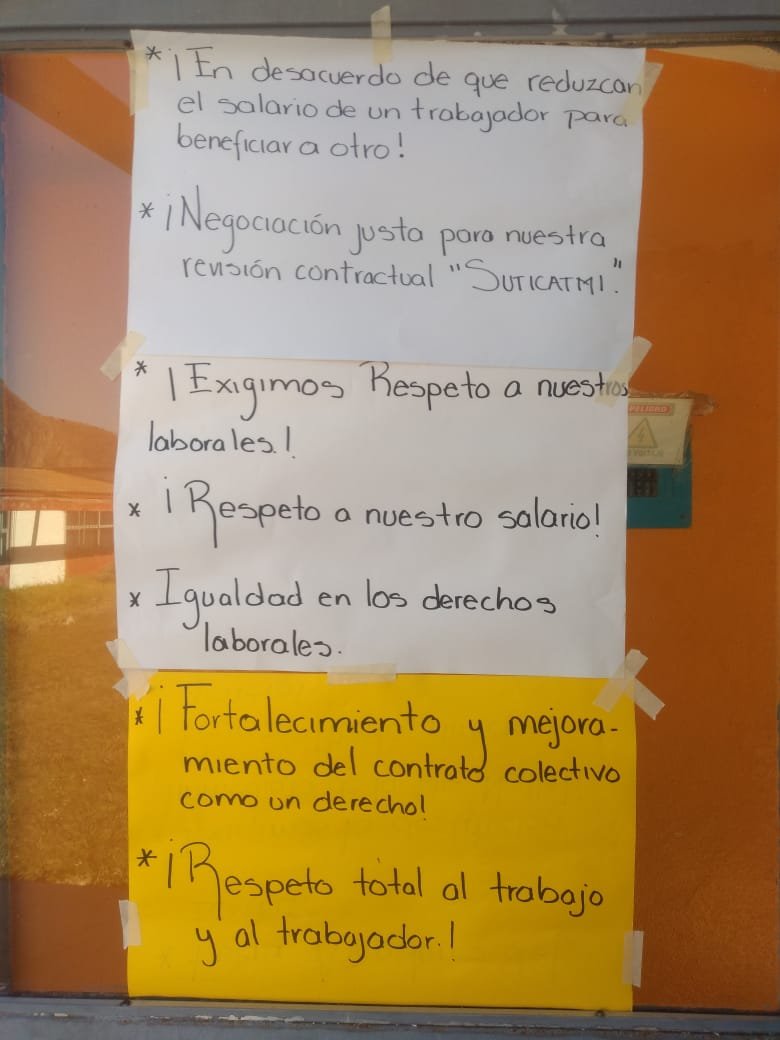 * ¡En desacuerdo de que reduzcan
el salario de un trabajador para
beneficiar a otro!
* ¡Negociación justa para nuestra
revisión contractual "SUTICATMI".
* ¡Exigimos Respeto a nuestros
laborales.!
* ¡Respeto a nuestro salario!
* Igualdad en los derechos
laborales.
* ¡Fortalecimiento y mejora-
miento del contrato colectivo
como un derecho!
* ¡Respeto total al trabajo
y al trabajador.!
PELIGRO
VOLTAJE